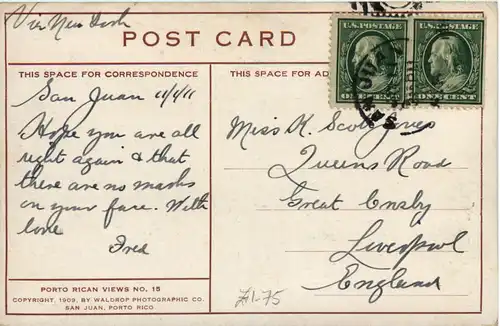 Via New York
POST CARD
U.S. POSTAGE
ONE CENT
U.S. POSTAGE
ONE CENT
THIS SPACE FOR CORRESPONDENCE
THIS SPACE FOR AD
San Juan 11/1/11
Hope you are all
right again & that
there are no marks
on your face. With
love
Fred
Miss K. Scott Jones
Queens Road
Great Crosby
Liverpool
England
PORTO RICAN VIEWS NO. 15
COPYRIGHT, 1909, BY WALDROP PHOTOGRAPHIC CO.
SAN JUAN, PORTO RICO